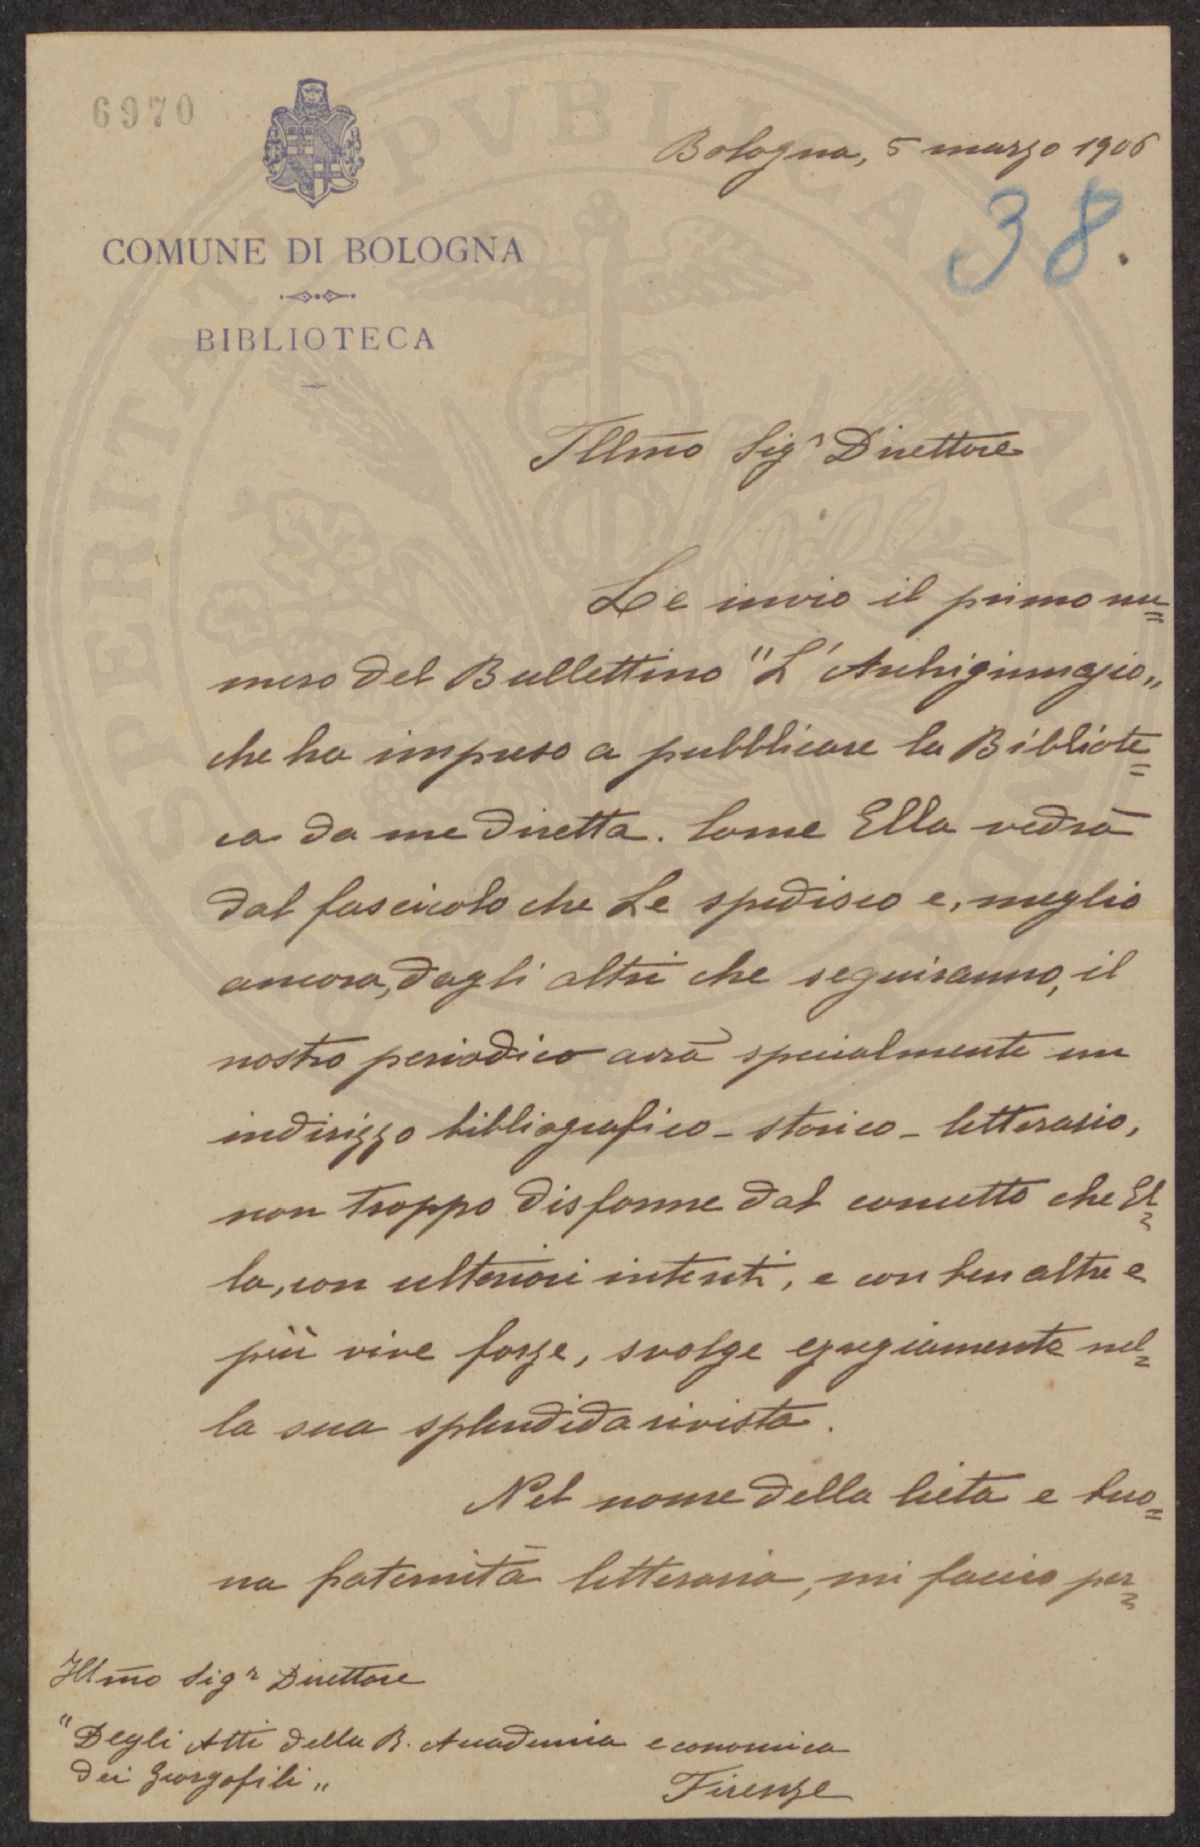 6970
Bologna, 5 marzo 1906
38.
COMUNE DI BOLOGNA
BIBLIOTECA
Illmo Sigr Direttore
Le invio il primo nu=
mero del Bullettino "L'Archiginnasio"
che ha impreso a pubblicare la Bibliote=
ca da me diretta. Come Ella vedrà
dal fascicolo che Le spedisco e, meglio
ancora, dagli altri che seguiranno, il
nostro periodico avrà specialmente un
indirizzo bibliografico-storico-letterario,
non troppo disforme dal concetto che El=
la, con ulteriori intenti, e con ben altre e
più vive forze, svolge egregiamente nel=
la sua splendida rivista.
Nel nome della lieta e buo=
na fraternità letteraria, mi faccio per=
Illmo Sigr Direttore
"Degli Atti della R. Accademia economica
dei Georgofili"
Firenze
PROSPERITATI PVBLICAE AVGENDAE